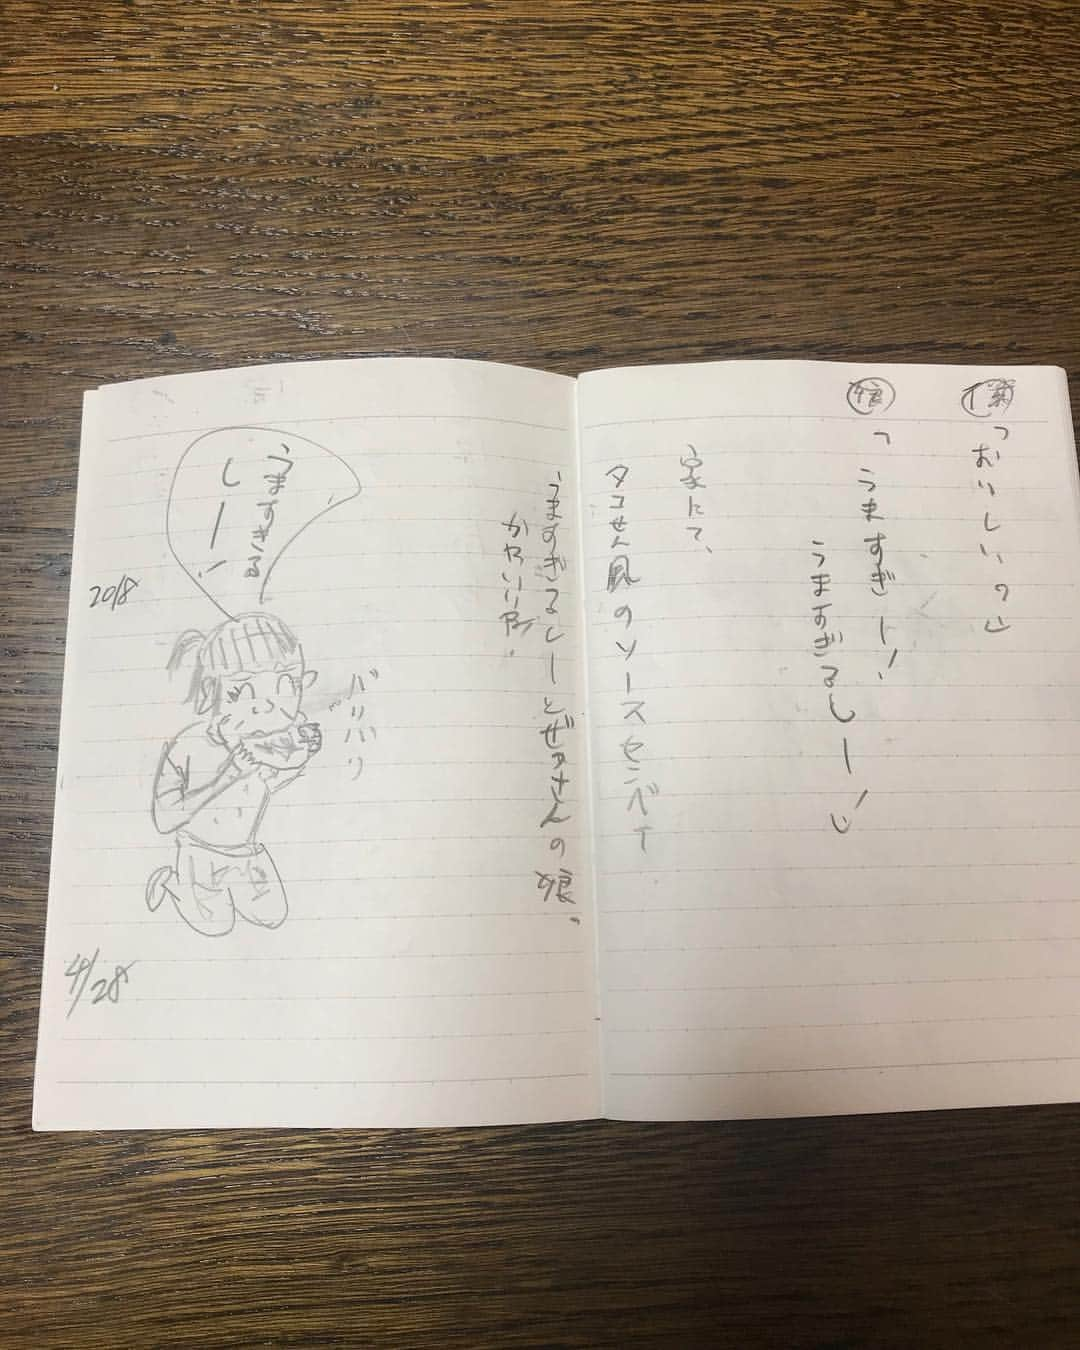 僕「おいしい?」
娘「うますぎー!
うますぎるしー!」
家にて、
タコせん風のソースセンベイ
うますぎるしーとぜっさんの娘。
かわいい
うますぎる
しー!
バリバリ
2018
4/28